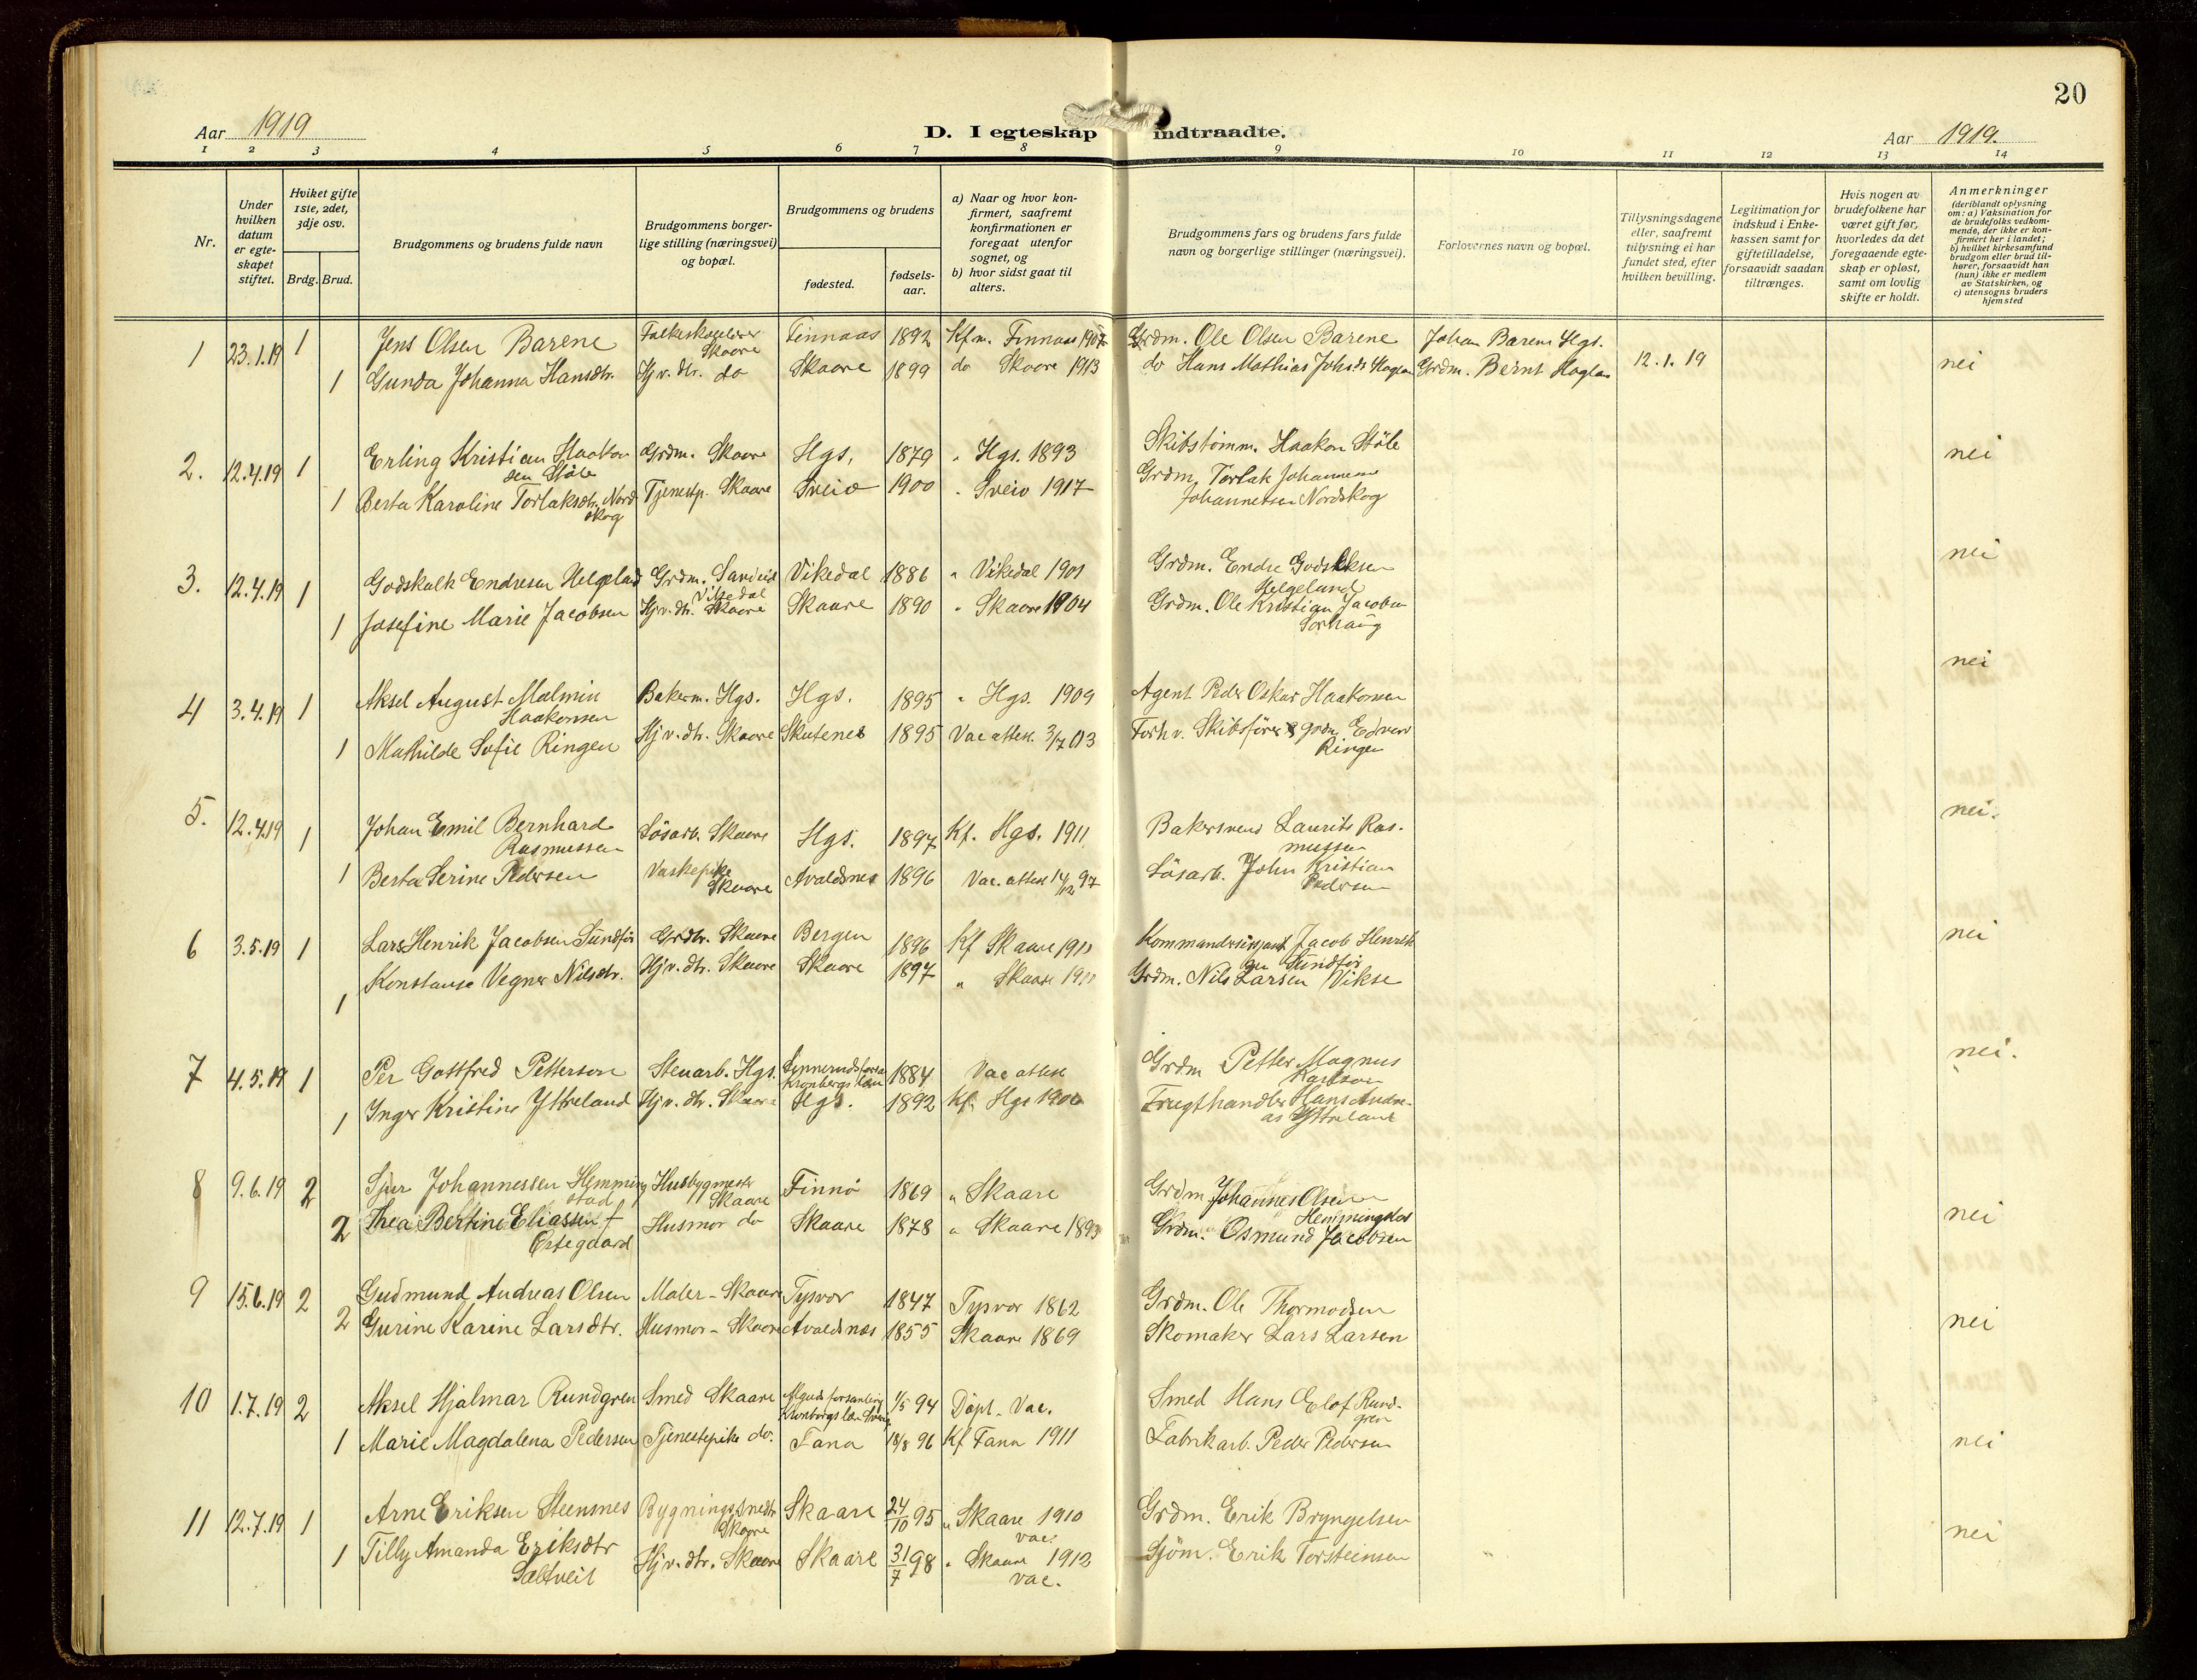 20
Aar 1919
D. I egteskap indtraadte.
Aar 1919.
1 2 3 4 5 6 7 8 9 10 11 12 13 14
Nr.
Under hvilken datum er egteskapet stiftet.
Hviket gifte 1ste, 2det, 3dje osv.
Brdg. Brud.
Brudgommens og brudens fulde navn
Brudgommens borgerlige stilling (næringsvei) og bopæl.
Brudgommens og brudens
fødested.
fødselsaar.
a) Naar og hvor konfirmert, saafremt konfirmationen er foregaat utenfor sognet, og
b) hvor sidst gaat til alters.
Brudgommens fars og brudens fars fulde navn og borgerlige stillinger (næringsvei).
Forlovernes navn og bopæl.
Tillysningsdagene eller, saafremt tillysning ei har fundet sted, efter hvilken bevilling.
Legitimation for indskud i Enkekassen samt for giftetilladelse, forsaavidt saadan tiltrænges.
Hvis nogen av brudefolkene har været gift før, hvorledes da det foregaaende egteskap er opløst, samt om lovlig skifte er holdt.
Anmerkninger (deriblandt oplysning om: a) Vaksination for de brudefolks vedkommende, der ikke er konfirmert her i landet; b) hvilket kirkesamfund brudgom eller brud tilhører, forsaavidt han (hun) ikke er medlem av Statskirken, og c) utensogns bruders hjemsted
1 23.1.19 1 Jens Olsen Barene Skaare Finnaas 1892 Kfm. Finnaas 1907 Grdm. Ole Olsen Barene Johan Barene Hgs.
1 Gunda Johanna Hansdtr. Hjv. dtr. do Skaare 1899 do Skaare 1913 do Hans Mathias Grdm. Bernt 12.1.19 nei
2. 12.4.19 1 Erling Kristian Haakon Grdm. Skaare Hgs. 1879 " Hgs. 1893 Skibstømm. Haakon Støle nei
sen Støle
1 Berta Karoline Torlaksdtr. Nord Tjenestp. Skaare Sveio 1900 " Sveio 1917 Grdm. Torlak Johannem
skog Johannessen Nordskog
3. 12.4.19 1 Godskalk Endresen Helgeland Grdm. Sandvid Vikedal 1886 " Vikedal 1901 Grdm. Endre Godskalksen nei
Vikedal Helgeland
1 Josefine Marie Jacobsen Hjv. dtr. Skaare Skaare 1890 " Skaare 1904 Grdm. Ole Kristian Jacobsen
Sørhaug
4 3.4.19 1 Aksel August Malmin Bakerm. Hgs. Hgs. 1895 " Hgs. 1909 Agent Peder Oskar Haakonsen nei
Haakonsen
1 Mathilde Sofie Ringen Hjv. dtr. Skaare Skutenes 1895 Vac attest 3/7 013 Forhv. Skibsfører & grdm
Ringen
5. 12.4.19 1 Johan Emil Bernhard Løsarb. Skaare Hgs. 1897 Kf. Hgs. 1911 Bakersvend Laurits Ras- nei.
Rasmussen mussen
1 Berta Serine Pedersen Vaskepike Skaare Avaldsnes 1896 Vac. attest 14/12 97 Løsarb. John Kristian
Pedersen
6 3.5.19 1 Lars Henrik Jacobsen Sundfør Grdbr. Skaare Bergen 1896 Kf Skaare 1911 Kommandersersjant Jacob Henrik nei
Sundfør
1 Konstanse Vegner Nilsdtr. Hjv. dtr. Skaare Skaare 1897 " Skaare 1911 Grdm. Nils Larsen Vikse
7 4.5.19 1 Per Gottfred Petterson Stenarb. Hgs. Kronbergs län 1884 Vac attest Grdm Petter Magnus nei.
Karlson
1 Inger Kristine Ytreland Hjv. dtr. Skaare Hgs. 1892 Kf. Hgs 1906 Frugthandler Hans Andre-
as Ytreland
8 9.6.19 2 Sjur Johannessen Hemming Husbygmester Finnø 1869 " Skaare Grdm Johannes Olsen
stad Skaare Hemmingstad
2 Thea Bertine Eliassen f Husmor do Skaare 1878 " Skaare 1893 Grdm. Osmund Jacobsen nei
Østegaard
9 15.6.19 2 Gudmund Andreas Olsen Maler - Skaare Tysvær 1847 Tysvær 1862 Grdm. Ole Thormodsen
2 Gurine Karine Larsdtr. Husmor - Skaare Avaldsnes 1855 Skaare 1869 Skomaker Lars Larsen nei
10 1.7.19 2 Aksel Hjalmar Rundgren Smed Skaare Kronbergs län Sverig 1/5 94 Døpt. Vac. Smed Hans Elof Rund-
gren
1 Marie Magdalena Pedersen Tjenestepike do. Fana 18/8 96 Kf Fana 1911 Fabrikarb. Peder Pedersen nei
11 12.7.19 1 Arne Eriksen Steensnes Bygningssnedk Skaare Skaare 24/10 95 " Skaare 1910 Grdm. Erik Bryngelsen
vac.
1 Tilly Amanda Eriksdtr Hjv. dtr. Skaare Skaare 31/7 98 " Skaare 1912 Sjøm. Erik Torsteinsen nei
Saltveit vac.